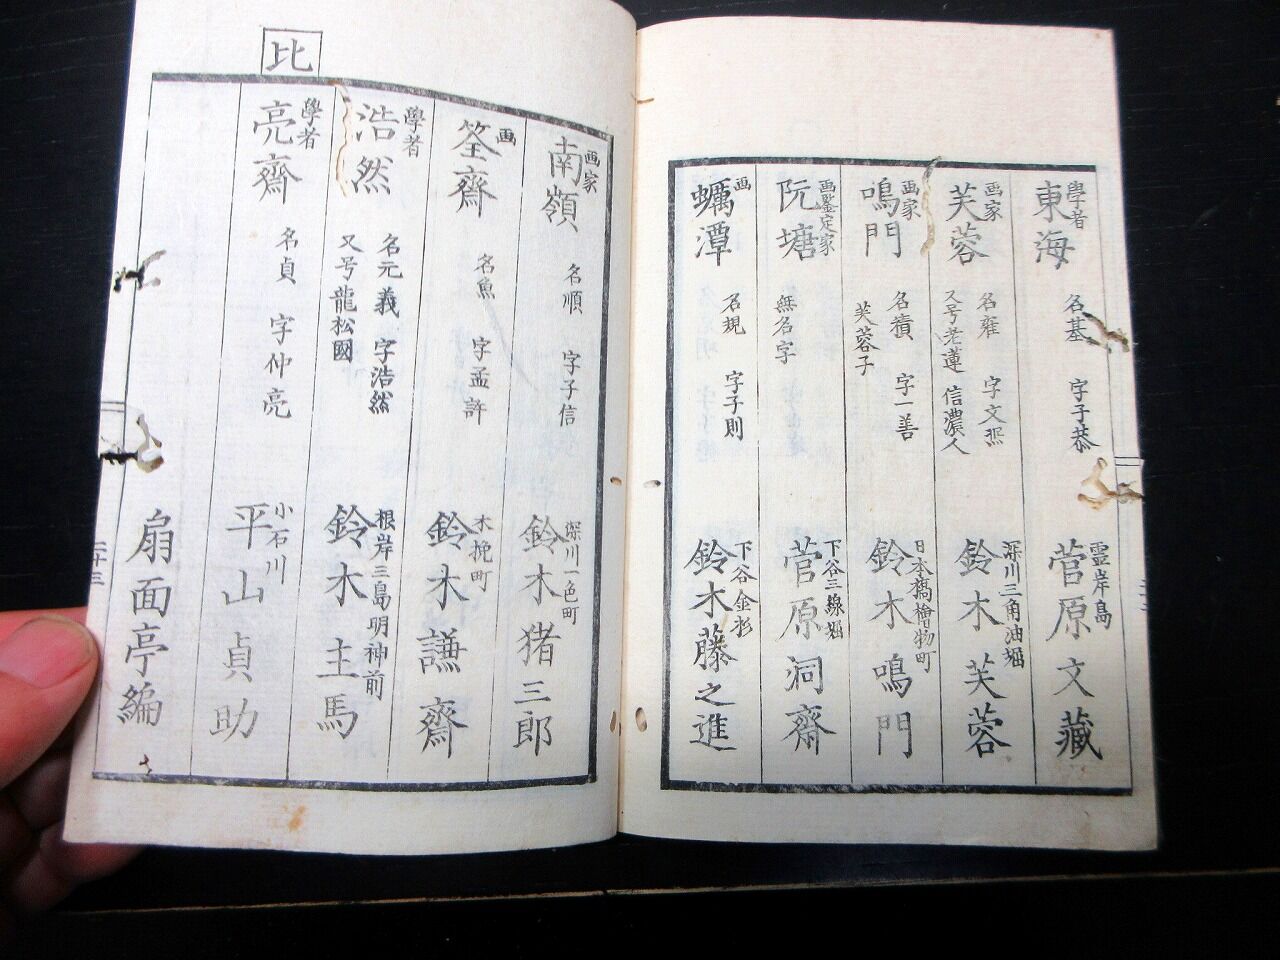 學者
東海 名基 字子恭
霊岸島
菅原文藏
画家
芙蓉 名雍 字文煕
又号老蓮 信濃人
深川三角油堀
鈴木芙蓉
画家
鳴門 名積 字一善
芙蓉子
日本橋檜物町
鈴木鳴門
画鑒定家
阮塘 無名字
下谷三線堀
菅原洞齋
画
蠣潭 名規 字子則
下谷金杉
鈴木藤之進
画家
南嶺 名順 字子信
深川一色町
鈴木猪三郎
画
筌齋 名魚 字孟許
木挽町
鈴木謙齋
學者
浩然 名元義 字浩然
又号龍松國
根岸三島明神前
鈴木主馬
比
學者
亮齋 名貞 字仲亮
小石川
平山貞助
扇面亭編
二十三